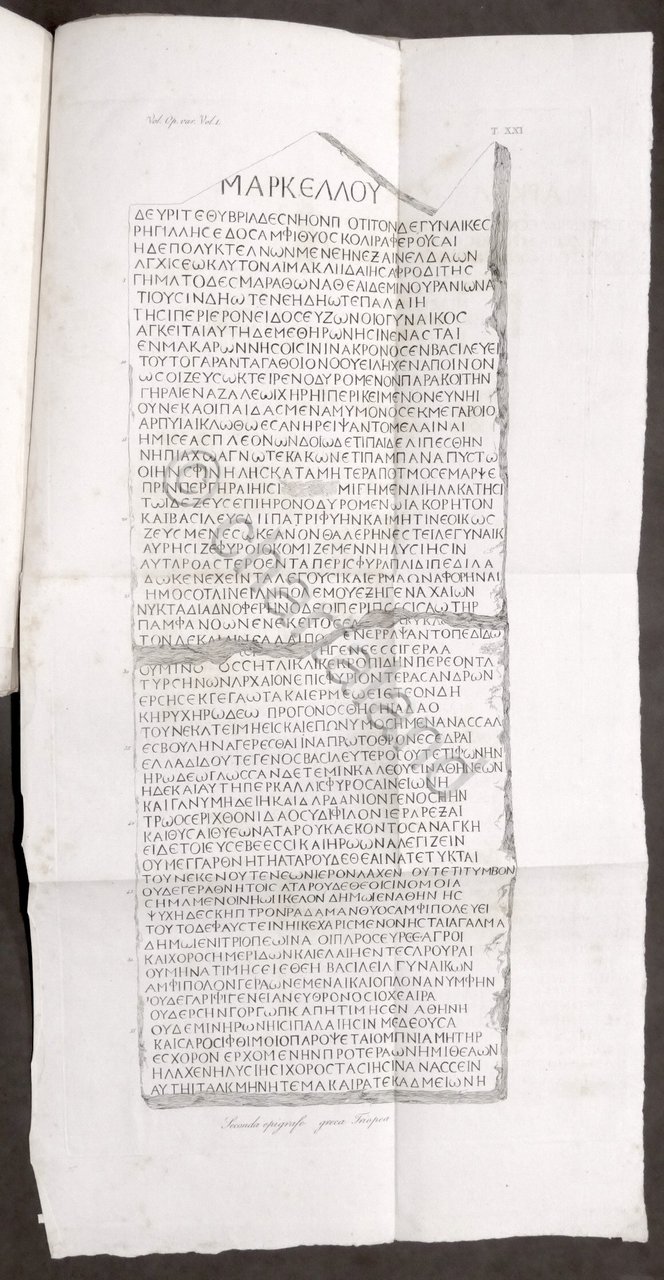 Vol. Op. var. Vol. I.
T. XXI
ΜΑΡΚΕΛΛΟΥ
ΔΕΥΡΙΤΕΘΥΒΡΙΑΔΕϹΝΗΟΝΠΟΤΙΤΟΝΔΕΓΥΝΑΙΚΕϹ
ΡΗΓΙΛΛΗϹΕΔΟϹΑΜΦΙΘΥΟϹΚΟΑΙΡΑΦΕΡΟΥϹΑΙ
ΗΔΕΠΟΛΥΚΤΕΑΝΩΝΜΕΝΕΗΝΕΞΑΙΝΕΑΔΑΩΝ
ΑΓΧΙϹΕΩΚΛΥΤΟΝΑΙΜΑΚΑΙΙΔΑΙΗϹΑΦΡΟΔΙΤΗϹ
ΓΗΜΑΤΟΔΕϹΜΑΡΑΘΩΝΑΘΕΑΙΔΕΜΙΝΟΥΡΑΝΙΩΝΑΙ
ΤΙΟΥϹΙΝΔΗΩΤΕΝΕΗΔΗΩΤΕΠΑΛΑΙΗ
ΤΗϹΙΠΕΡΙΕΡΟΝΕΙΔΟϹΕΥΖΩΝΟΙΟΓΥΝΑΙΚΟϹ
ΑΓΚΕΙΤΑΙΑΥΤΗΔΕΜΕΘΗΡΩΝΗϹΙΝΕΝΑϹΤΑΙ
ΕΝΜΑΚΑΡΩΝΝΗϹΟΙϹΙΝΙΝΑΚΡΟΝΟϹΕΝΒΑϹΙΛΕΥΕΙ
ΤΟΥΤΟΓΑΡΑΝΤΑΓΑΘΟΙΟΝΟΟΥΕΙΛΗΧΕΝΑΠΟΙΝΟΝ
ΩϹΟΙΖΕΥϹΩΚΤΕΙΡΕΝΟΔΥΡΟΜΕΝΟΝΠΑΡΑΚΟΙΤΗΝ
ΓΗΡΑΙΕΝΑΖΑΛΕΩΙΧΗΡΗΙΠΕΡΙΚΕΙΜΕΝΟΝΕΥΝΗΙ
ΟΥΝΕΚΑΟΙΠΑΙΔΑϹΜΕΝΑΜΥΜΟΝΟϹΕΚΜΕΓΑΡΟΙΟ
ΑΡΠΥΙΑΙΚΛΩΘΩΕϹΑΝΗΡΕΙΨΑΝΤΟΜΕΛΑΙΝΑΙ
ΗΜΙϹΕΑϹΠΛΕΟΝΩΝΔΟΙΩΔΕΤΙΠΑΙΔΕΛΙΠΕϹΘΗΝ
ΝΗΠΙΑΧΩΑΓΝΩΤΕΚΑΚΩΝΕΤΙΠΑΜΠΑΝΑΠΥϹΤΩ
ΟΙΗΝϹΦΙΝΗΛΗϹΚΑΤΑΜΗΤΕΡΑΠΟΤΜΟϹΕΜΑΡΨΕ
ΠΡΙΝΠΕΡΓΗΡΑΙΗΙϹΙ ΜΙΓΗΜΕΝΑΙΗΛΑΚΑΤΗϹΙ
ΤΩΙΔΕΖΕΥϹΕΠΙΗΡΟΝΟΔΥΡΟΜΕΝΩΙΑΚΟΡΗΤΟΝ
ΚΑΙΒΑϹΙΛΕΥϹΔΙΙΠΑΤΡΙΦΥΗΝΚΑΙΜΗΤΙΝΕΟΙΚΩϹ
ΖΕΥϹΜΕΝΕϹΩΚΕΑΝΟΝΘΑΛΕΡΗΝΕϹΤΕΙΛΕΓΥΝΑΙΚ
ΑΥΡΗϹΙΖΕΦΥΡΟΙΟΚΟΜΙΖΕΜΕΝΝΗΛΥϹΙΗϹΙΝ
ΑΥΤΑΡΟΑϹΤΕΡΟΕΝΤΑΠΕΡΙϹΦΥΡΑΠΑΙΔΙΠΕΔΙΛΑ
ΔΩΚΕΝΕΧΕΙΝΤΑΛΕΓΟΥϹΙΚΑΙΕΡΜΑΩΝΑΦΟΡΗΝΑΙ
ΗΜΟϹΟΤΑΙΝΕΙΑΝΠΟΛΕΜΟΥΕΞΗΓΕΝΑΧΑΙΩΝ
ΝΥΚΤΑΔΙΑΔΝΟΦΕΡΗΝΟΔΕΟΙΠΕΡΙΠΟϹϹΙϹΑΩΤΗΡ
ΠΑΜΦΑΝΟΩΝΕΝΕΚΕΙΤΟϹΕ ΚΥΚΛΟ
ΤΟΝΔΕΚΑΙΑΙΝΕΑΔΑΙΠΟ ΝΕΡΡΑΨΑΝΤΟΠΕΔΙΛΩ
ΗΓΕΝΕΕϹϹΙΓΕΡΑΑ
ΟΥΜΙΝΟΝΟϹϹΗΤΑΙΚΑΙΚΕΚΡΟΠΙΔΗΝΠΕΡΕΟΝΤΑ
ΤΥΡϹΗΝΩΝΑΡΧΑΙΟΝΕΠΙϹΦΥΡΙΟΝΓΕΡΑϹΑΝΔΡΩΝ
ΕΡϹΗϹΕΚΓΕΓΑΩΤΑΚΑΙΕΡΜΕΩΕΙΕΤΕΟΝΔΗ
ΚΗΡΥΧΗΡΩΔΕΩ ΠΡΟΓΟΝΟϹΘΗϹΗΙΑΔΑΟ
ΤΟΥΝΕΚΑΤΕΙΜΗΕΙϹΚΑΙΕΠΩΝΥΜΟϹΗΜΕΝΑΝΑϹϹΑΝ
ΕϹΒΟΥΛΗΝΑΓΕΡΕϹΘΑΙΙΝΑΠΡΩΤΟΘΡΟΝΕϹΕΔΡΑΙ
ΕΛΛΑΔΙΔΟΥΤΕΓΕΝΟϹΒΑϹΙΛΕΥΤΕΡΟϹΟΥΤΕΤΙΦΩΝΗΝ
ΗΡΩΔΕΩΓΛΩϹϹΑΝΔΕΤΕΜΙΝΚΑΛΕΟΥϹΙΝΑΘΗΝΕΩΝ
ΗΔΕΚΑΙΑΥΤΗΠΕΡΚΑΛΛΙϹΦΥΡΟϹΑΙΝΕΙΩΝΗ
ΚΑΙΓΑΝΥΜΗΔΕΙΗΚΑΙΔΑΡΔΑΝΙΟΝΓΕΝΟϹΗΗΝ
ΤΡΩΟϹΕΡΙΧΘΟΝΙΔΑΟϹΥΔΙΦΙΛΟΝΙΕΡΑΡΕΞΑΙ
ΚΑΙΘΥϹΑΙΘΥΕΩΝΑΤΑΡΟΥΚΑΕΚΟΝΤΟϹΑΝΑΓΚΗ
ΕΙΔΕΤΟΙΕΥϹΕΒΕΕϹϹΙΚΑΙΗΡΩΩΝΑΛΕΓΙΖΕΙΝ
ΟΥΜΕΓΓΑΡΘΝΗΤΗΑΤΑΡΟΥΔΕΘΕΑΙΝΑΤΕΤΥΚΤΑΙ
ΤΟΥΝΕΚΕΝΟΥΤΕΝΕΩΝΙΕΡΟΝΛΑΧΕΝ ΟΥΤΕΤΙΤΥΜΒΟΝ
ΟΥΔΕΓΕΡΑΘΝΗΤΟΙϹ ΑΤΑΡΟΥΔΕΘΕΟΙϹΙΝΟΜΟΙΑ
ϹΗΜΑΜΕΝΟΙΝΗΩΙΙΚΕΛΟΝ ΔΗΜΩΙΕΝΑΘΗΝ ΗϹ
ΨΥΧΗΔΕϹΚΗΠΤΡΟΝΡΑΔΑΜΑΝΘΥΟϹΑΜΦΙΠΟΛΕΥΕΙ
ΤΟΥΤΟΔΕΦΑΥϹΤΕΙΝΗΙΚΕΧΑΡΙϹΜΕΝΟΝΗϹΤΑΙΑΓΑΛΜΑ
ΔΗΜΩΙΕΝΙΤΡΙΟΠΕΩΙΝΑ ΟΙΠΑΡΟϹΕΥΡΕΕϹΑΓΡΟΙ
ΚΑΙΧΟΡΟϹΗΜΕΡΙΔΩΝΚΑΙΕΛΑΙΗΕΝΤΕϹΑΡΟΥΡΑΙ
ΟΥΜΗΝΑΤΙΜΗϹΕΙΕΘΕΗ ΒΑϹΙΛΕΙΑΓΥΝΑΙΚΩΝ
ΑΜΦΙΠΟΛΟΝΓΕΡΑΩΝΕΜΕΝΑΙΚΑΙΟΠΑΟΝΑΝΥΜΦΗΝ
ΟΥΔΕΓΑΡΙΦΙΓΕΝΕΙΑΝΕΥΘΡΟΝΟϹΙΟΧΕΑΙΡΑ
ΟΥΔΕΡϹΗΝΓΟΡΓΩΠΙϹΑΠΗΤΙΜΗϹΕΝ ΑΘΗΝΗ
ΟΥΔΕΜΙΝΗΡΩΝΗϹΙΠΑΛΑΙΗϹΙΝ ΜΕΔΕΟΥϹΑ
ΚΑΙϹΑΡΟϹΙΦΘΙΜΟΙΟΠΑΡΟΨΕΤΑΙΟΜΠΝΙΑΜΗΤΗΡ
ΕϹΧΟΡΟΝΕΡΧΟΜΕΝΗΝΠΡΟΤΕΡΑΩΝΗΜΙΘΕΑΩΝ
ΗΛΑΧΕΝΗΛΥϹΙΗϹΙΧΟΡΟϹΤΑϹΙΗϹΙΝΑΝΑϹϹΕΙΝ
ΑΥΤΗΙΤΑΛΚΜΗΝΗΤΕΜΑΚΑΙΡΑΤΕΚΑΔΜΕΙΩΝΗ
Seconda epigrafe greca Triopea